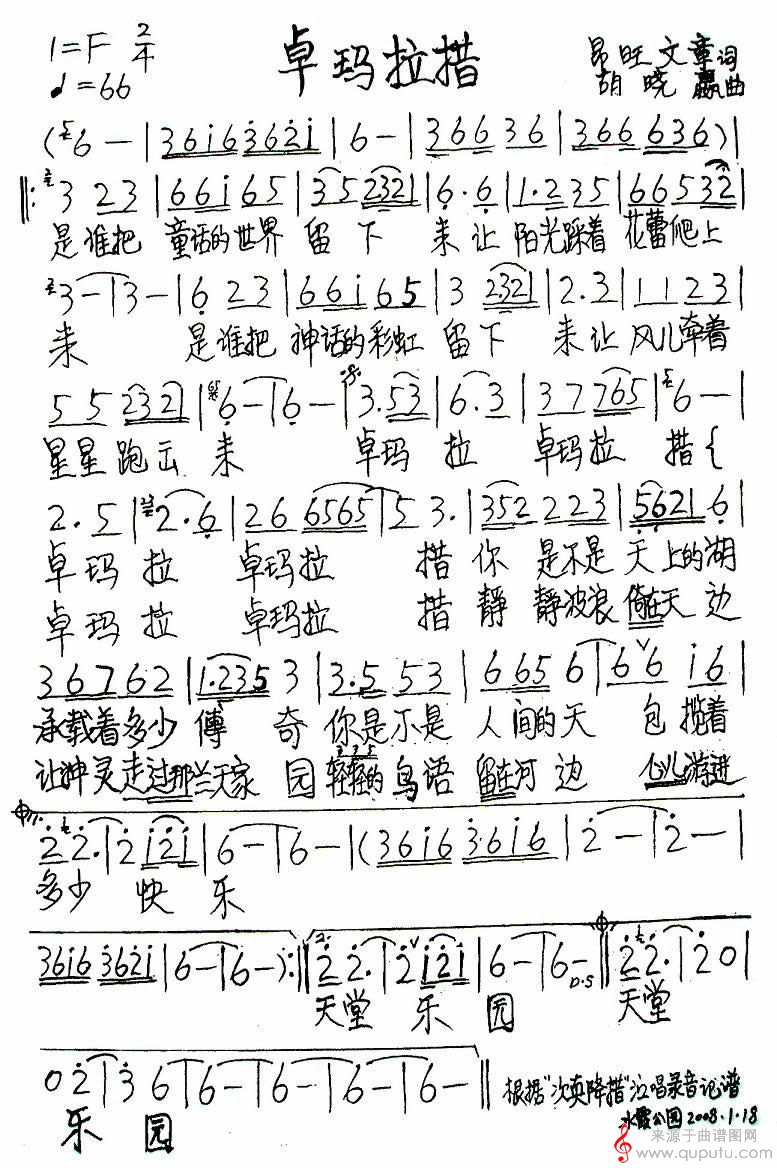 1=F 2/4 卓玛拉措 昂旺文章词
♩=66 胡晓嬴曲
(6 — | 36i6 362i | 6 — | 366 36 | 366 636) |
‖: 3 23 | 66i 65 | 35 2321 | 6· 6 | 1·2 35 | 66532 |
是谁把 童话的世界 留下 来让 阳光踩着 花蕾爬上
3 — | 3 — | 6 23 | 66i 65 | 3 2321 | 2·3 | 11 23 |
来 是谁把 神话的彩虹 留下 来让 风儿牵着
55 232 | 6 — | 6 — | 3·53 | 6·3 | 3 7 765 | 6 — |
星星跑云来 卓玛拉 卓玛拉 措{
2·5 | 2·6 | 26 6565 | 5 3· | 352 223 | 5621 6 |
卓玛拉 卓玛拉 措你 是不是 天上的湖
卓玛拉 卓玛拉 措静 静波浪 倚在天边
36762 | 1·235 3 | 3·5 53 | 6 65 6 | 6 6 i6 |
承载着多少传奇 你是不是 人间的天 包揽着
让神灵走过那兰天家园 轻轻的鸟语 留在河边 心儿游进
2 2· | 2 i2i | 6 — | 6 — | (36i6 3·6i6 | 2 — | 2 — |
多少 快 乐
36i6 362i | 6 — | 6 — ) :‖ 2. 2 2· | 2 i2i | 6 — | 6 — D.S ‖ 2 2· | 2 0 |
天堂 乐 园 天堂
0 2 | 3 6 | 6 — | 6 — | 6 — | 6 — ‖ 根据“次卖降措”泣唱录音记谱
乐 园 水霞公园2008.1.18
来源于曲谱图网
www.quputu.com